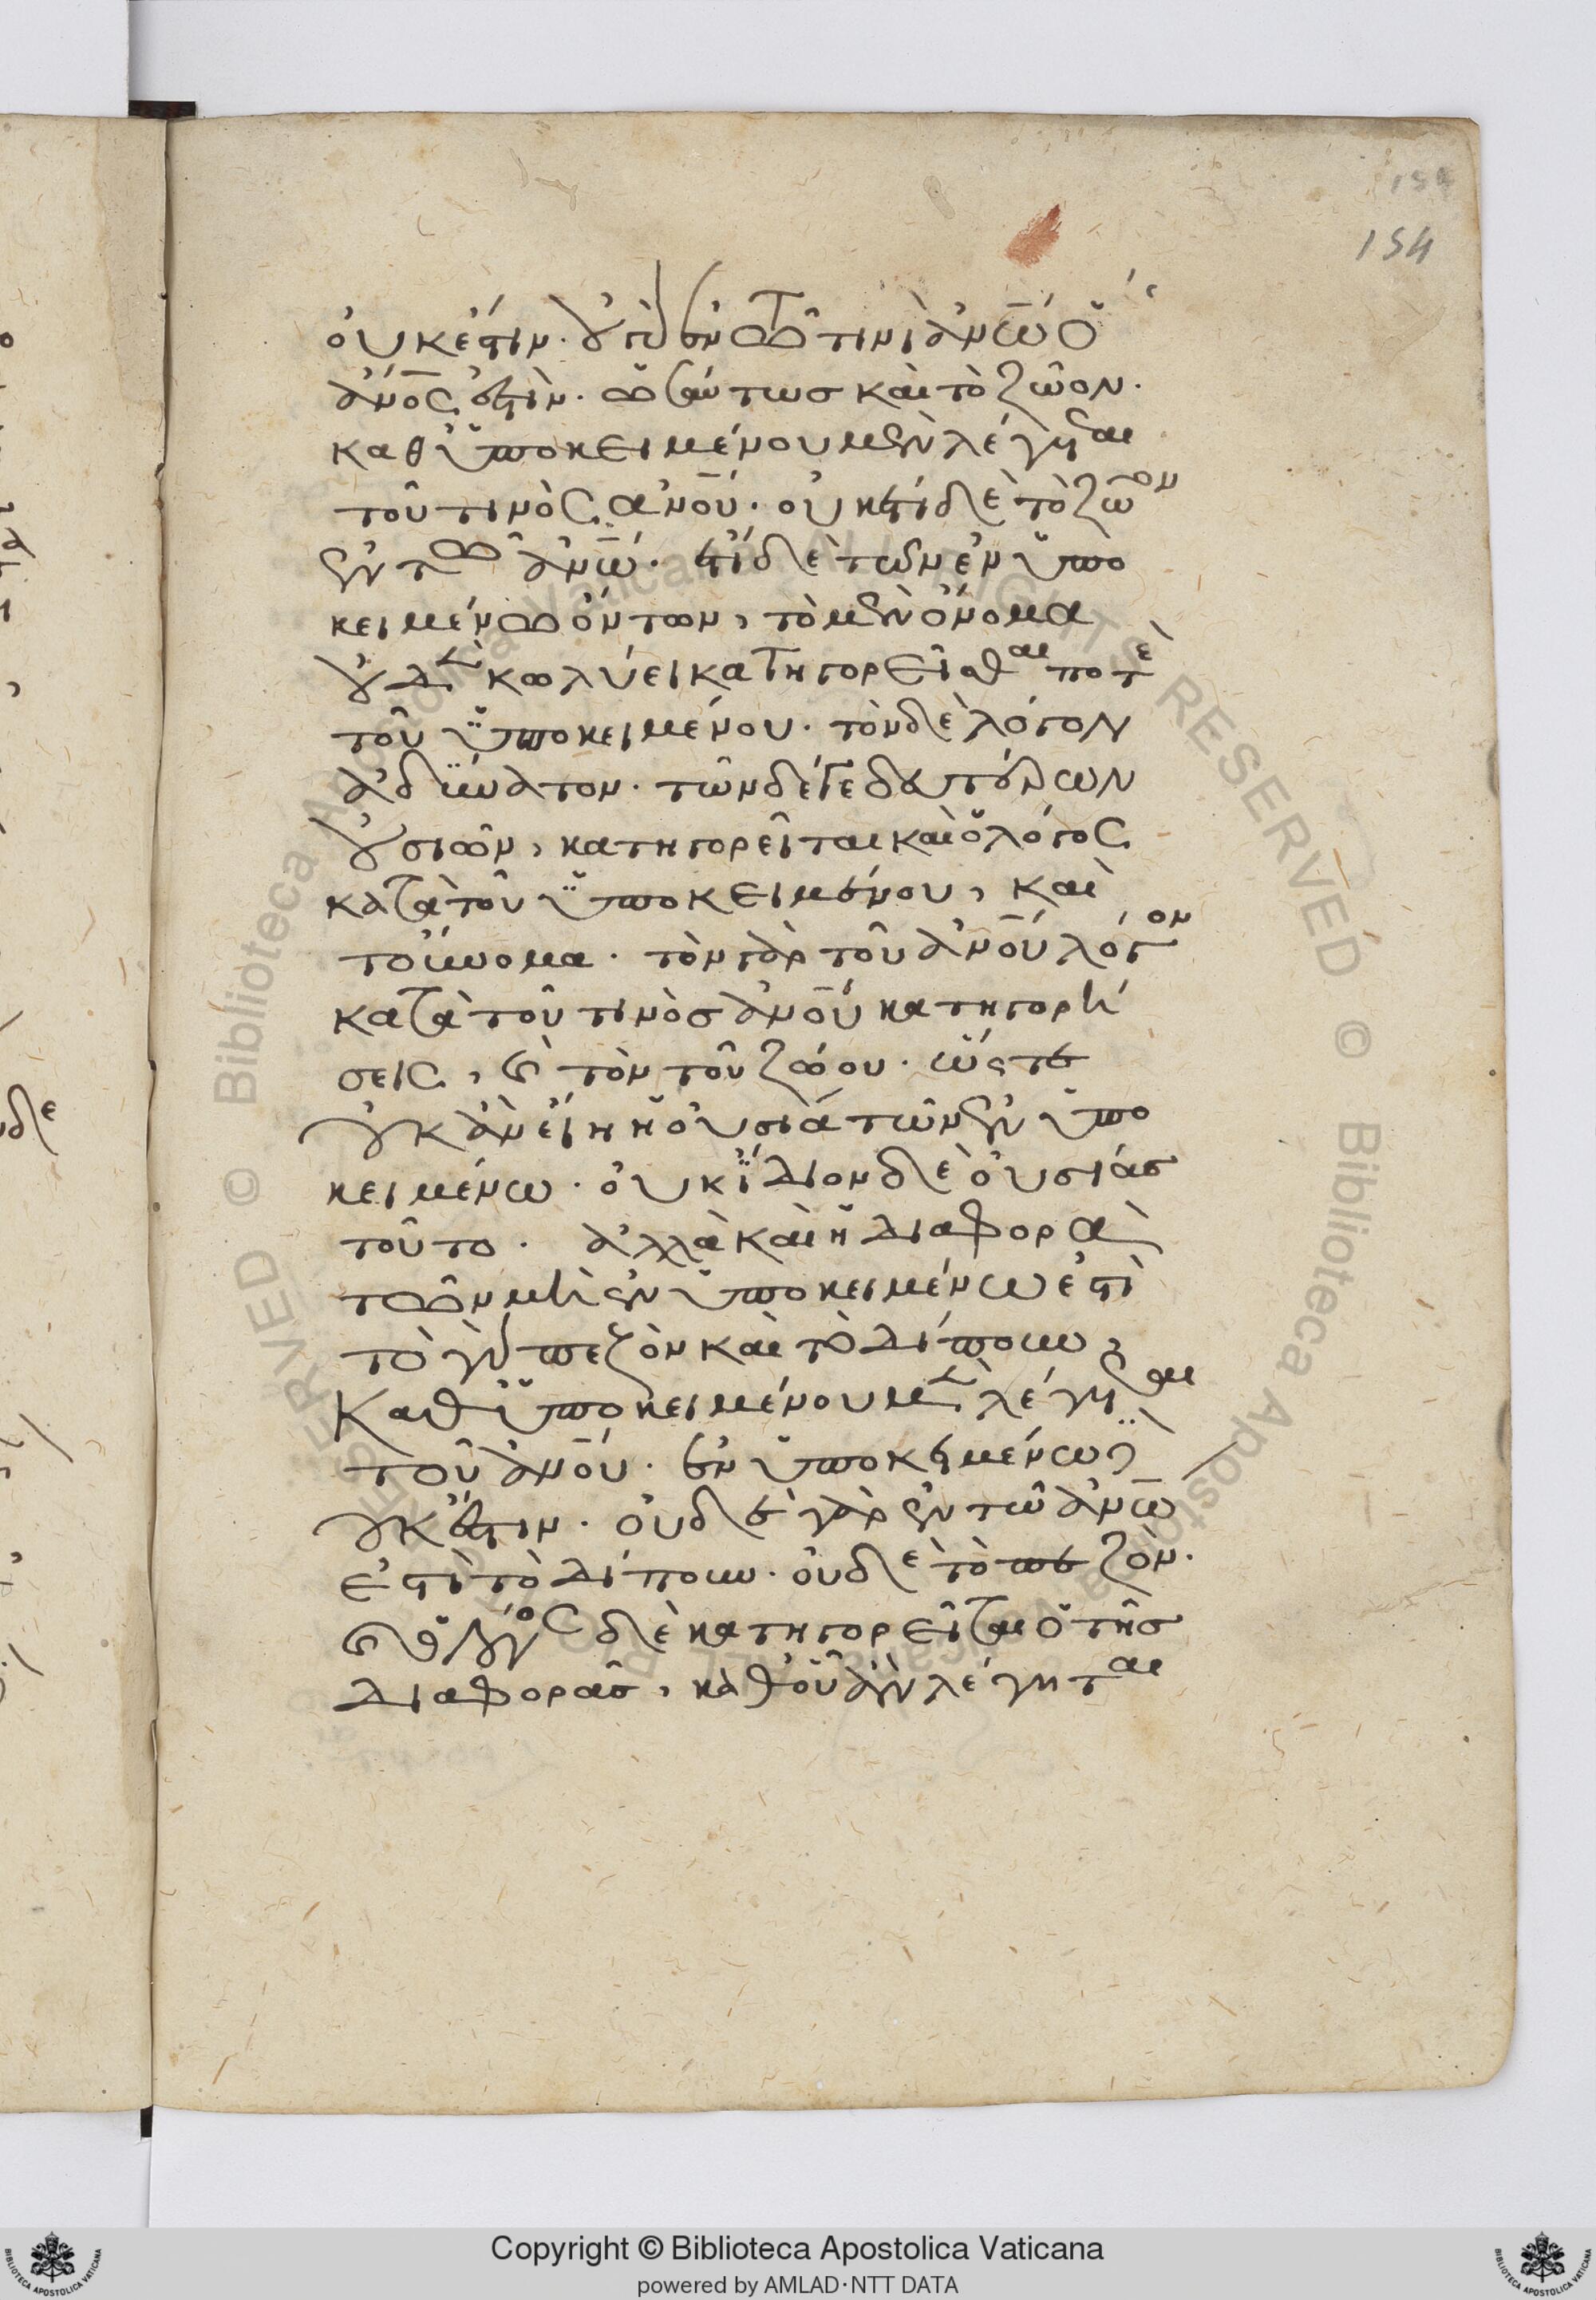 154
154
οὐκ ἔστιν· οὐ γὰρ ἐν τῶ τινὶ ἀν̅ω̅ ὁ
ἄν̅ο̅ς ἐστὶν· ὡσαύτως καὶ τὸ ζῶον·
καθ' ὑποκειμένου μὲν λέγεται
τοῦ τινὸς ἀν̅ο̅ύ· οὐκ ἔστι δὲ τὸ ζῶον
ἐν τῶ ἀν̅ω̅· ἔτι δὲ τῶν ἐν ὑπο
κειμένω ὄντων, τὸ μὲν ὄνομα
οὐδὲν κωλύει κατηγορεῖσθαι ποτὲ
τοῦ ὑποκειμένου· τὸν δὲ λόγον
ἀδύνατον· τῶν δέ γε δευτέρων
οὐσιῶν, κατηγορεῖται καὶ ὁ λόγος
κατὰ τοῦ ὑποκειμένου, καὶ
τοὔνομα· τὸν γὰρ τοῦ ἀν̅ο̅ύ λόγον
κατὰ τοῦ τινὸς ἀν̅ο̅ύ κατηγορή
σεις, καὶ τὸν τοῦ ζώου· ὥστε
οὐκ ἂν εἴη ἡ οὐσία τῶν ἐν ὑπο
κειμένω· οὐκ ἴδιον δὲ οὐσίας
τοῦτο· ἀλλὰ καὶ ἡ διαφορὰ
τῶν μὴ ἐν ὑποκειμένω ἐστὶ
τὸ γὰρ πεζὸν καὶ τὸ δίπουν,
καθ' ὑποκειμένου μὲν λέγεται
τοῦ ἀν̅ο̅ύ· ἐν ὑποκειμένω δὲ
οὐκ ἔστιν· οὐδὲ γὰρ ἐν τῶ ἀν̅ω̅
ἐστὶ τὸ δίπουν· οὐδὲ τὸ πεζόν·
καὶ ὁ λόγος δὲ κατηγορεῖται ὁ τῆς
διαφορᾶς, καθ' οὗ ἂν λέγηται
Copyright © Biblioteca Apostolica Vaticana
powered by AMLAD·NTT DATA